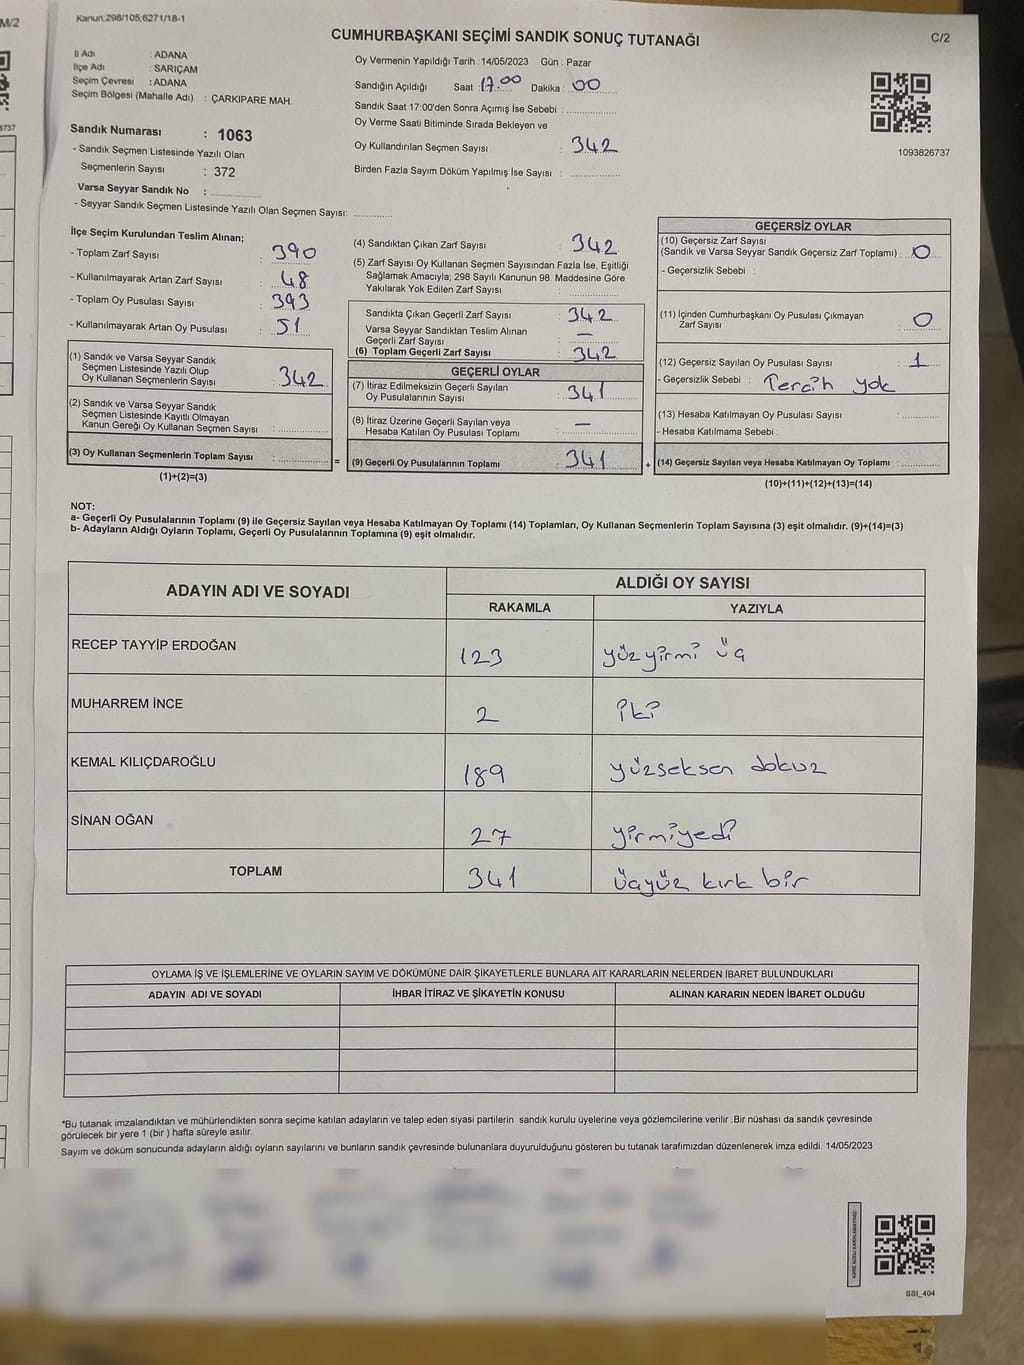 M/2
6737
Kanun:298/105,6271/18-1
C/2
CUMHURBAŞKANI SEÇİMİ SANDIK SONUÇ TUTANAĞI
İl Adı : ADANA
İlçe Adı : SARIÇAM
Seçim Çevresi : ADANA
Seçim Bölgesi (Mahalle Adı) : ÇARKIPARE MAH.
Sandık Numarası : 1063
- Sandık Seçmen Listesinde Yazılı Olan
Seçmenlerin Sayısı : 372
Varsa Seyyar Sandık No :
- Seyyar Sandık Seçmen Listesinde Yazılı Olan Seçmen Sayısı:
Oy Vermenin Yapıldığı Tarih : 14/05/2023 Gün : Pazar
Sandığın Açıldığı Saat : 17.00 Dakika : 00
Sandık Saat 17:00'den Sonra Açımış İse Sebebi :
Oy Verme Saati Bitiminde Sırada Bekleyen ve
Oy Kullandırılan Seçmen Sayısı : 342
Birden Fazla Sayım Döküm Yapılmış İse Sayısı :
1093826737
İlçe Seçim Kurulundan Teslim Alınan;
- Toplam Zarf Sayısı : 390
- Kullanılmayarak Artan Zarf Sayısı : 48
- Toplam Oy Pusulası Sayısı : 393
- Kullanılmayarak Artan Oy Pusulası : 51
(1) Sandık ve Varsa Seyyar Sandık
Seçmen Listesinde Yazılı Olup
Oy Kullanan Seçmenlerin Sayısı : 342
(2) Sandık ve Varsa Seyyar Sandık
Seçmen Listesinde Kayıtlı Olmayan
Kanun Gereği Oy Kullanan Seçmen Sayısı :
(3) Oy Kullanan Seçmenlerin Toplam Sayısı :
(1)+(2)=(3)
=
(4) Sandıktan Çıkan Zarf Sayısı : 342
(5) Zarf Sayısı Oy Kullanan Seçmen Sayısından Fazla İse, Eşitliği
Sağlamak Amacıyla; 298 Sayılı Kanunun 98. Maddesine Göre
Yakılarak Yok Edilen Zarf Sayısı :
Sandıkta Çıkan Geçerli Zarf Sayısı : 342
Varsa Seyyar Sandıktan Teslim Alınan
Geçerli Zarf Sayısı : —
(6) Toplam Geçerli Zarf Sayısı : 342
GEÇERLİ OYLAR
(7) İtiraz Edilmeksizin Geçerli Sayılan
Oy Pusulalarının Sayısı : 341
(8) İtiraz Üzerine Geçerli Sayılan veya
Hesaba Katılan Oy Pusulası Toplamı : —
(9) Geçerli Oy Pusulalarının Toplamı : 341
+
GEÇERSİZ OYLAR
(10) Geçersiz Zarf Sayısı
(Sandık ve Varsa Seyyar Sandık Geçersiz Zarf Toplamı) : 0
- Geçersizlik Sebebi :
(11) İçinden Cumhurbaşkanı Oy Pusulası Çıkmayan
Zarf Sayısı : 0
(12) Geçersiz Sayılan Oy Pusulası Sayısı : 1
- Geçersizlik Sebebi : Tercih yok
(13) Hesaba Katılmayan Oy Pusulası Sayısı :
- Hesaba Katılmama Sebebi :
(14) Geçersiz Sayılan veya Hesaba Katılmayan Oy Toplamı :
(10)+(11)+(12)+(13)=(14)
NOT:
a- Geçerli Oy Pusulalarının Toplamı (9) ile Geçersiz Sayılan veya Hesaba Katılmayan Oy Toplamı (14) Toplamları, Oy Kullanan Seçmenlerin Toplam Sayısına (3) eşit olmalıdır. (9)+(14)=(3)
b- Adayların Aldığı Oyların Toplamı, Geçerli Oy Pusulalarının Toplamına (9) eşit olmalıdır.
ADAYIN ADI VE SOYADI
ALDIĞI OY SAYISI
RAKAMLA YAZIYLA
RECEP TAYYİP ERDOĞAN 123 yüzyirmi üç
MUHARREM İNCE 2 iki
KEMAL KILIÇDAROĞLU 189 yüzseksen dokuz
SİNAN OĞAN 27 yirmiyedi
TOPLAM 341 üçyüz kırk bir
OYLAMA İŞ VE İŞLEMLERİNE VE OYLARIN SAYIM VE DÖKÜMÜNE DAİR ŞİKAYETLERLE BUNLARA AİT KARARLARIN NELERDEN İBARET BULUNDUKLARI
ADAYIN ADI VE SOYADI İHBAR İTİRAZ VE ŞİKAYETİN KONUSU ALINAN KARARIN NEDEN İBARET OLDUĞU
*Bu tutanak imzalandıktan ve mühürlendikten sonra seçime katılan adayların ve talep eden siyasi partilerin sandık kurulu üyelerine veya gözlemcilerine verilir .Bir nüshası da sandık çevresinde
görülecek bir yere 1 (bir ) hafta süreyle asılır.
Sayım ve döküm sonucunda adayların aldığı oyların sayılarını ve bunların sandık çevresinde bulunanlara duyurulduğunu gösteren bu tutanak tarafımızdan düzenlenerek imza edildi. 14/05/2023
SSI_404